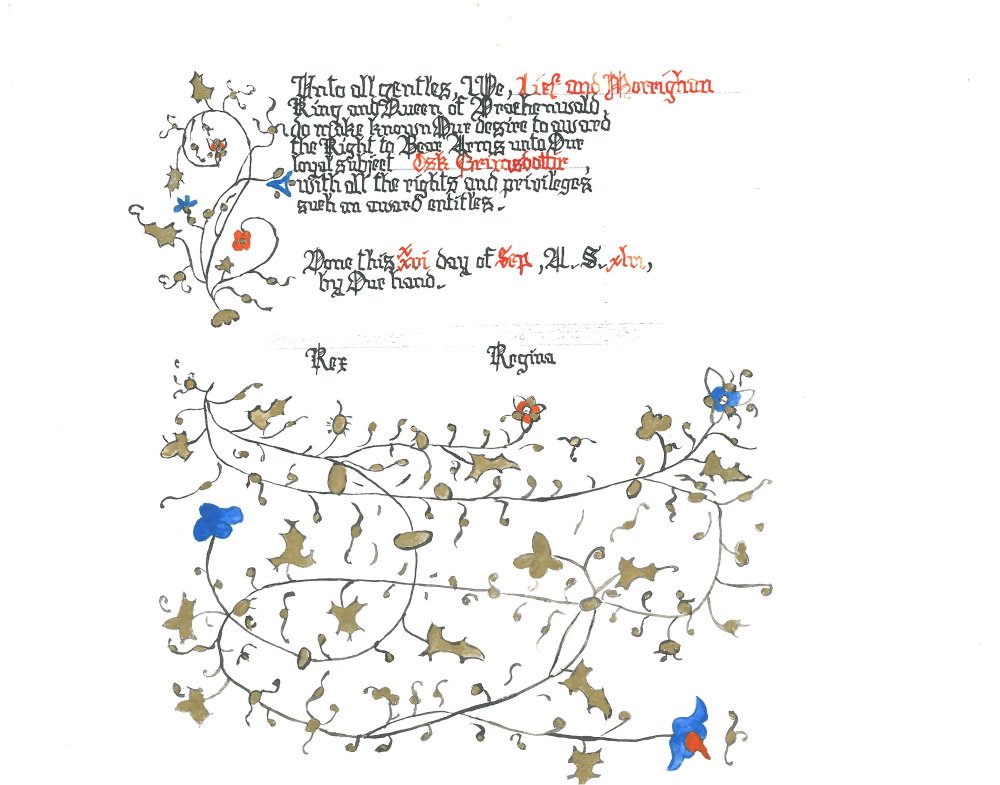 Unto all gentles, We, Lief and Morrighan
King and Queen of Drachenwald,
do make known Our desire to award
the Right to Bear Arms unto Our
loyal subject Osk Grimsdottir ,
with all the rights and privileges
such an award entitles.
Done this xxvi day of Sep, A. S. xlvi,
by Our hand.
Rex Regina